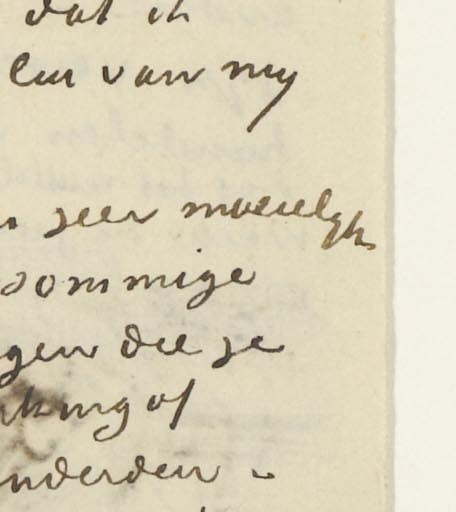 dat ik
van my
zeer moeielyk
sommige
gen die ze
king of
nderden -